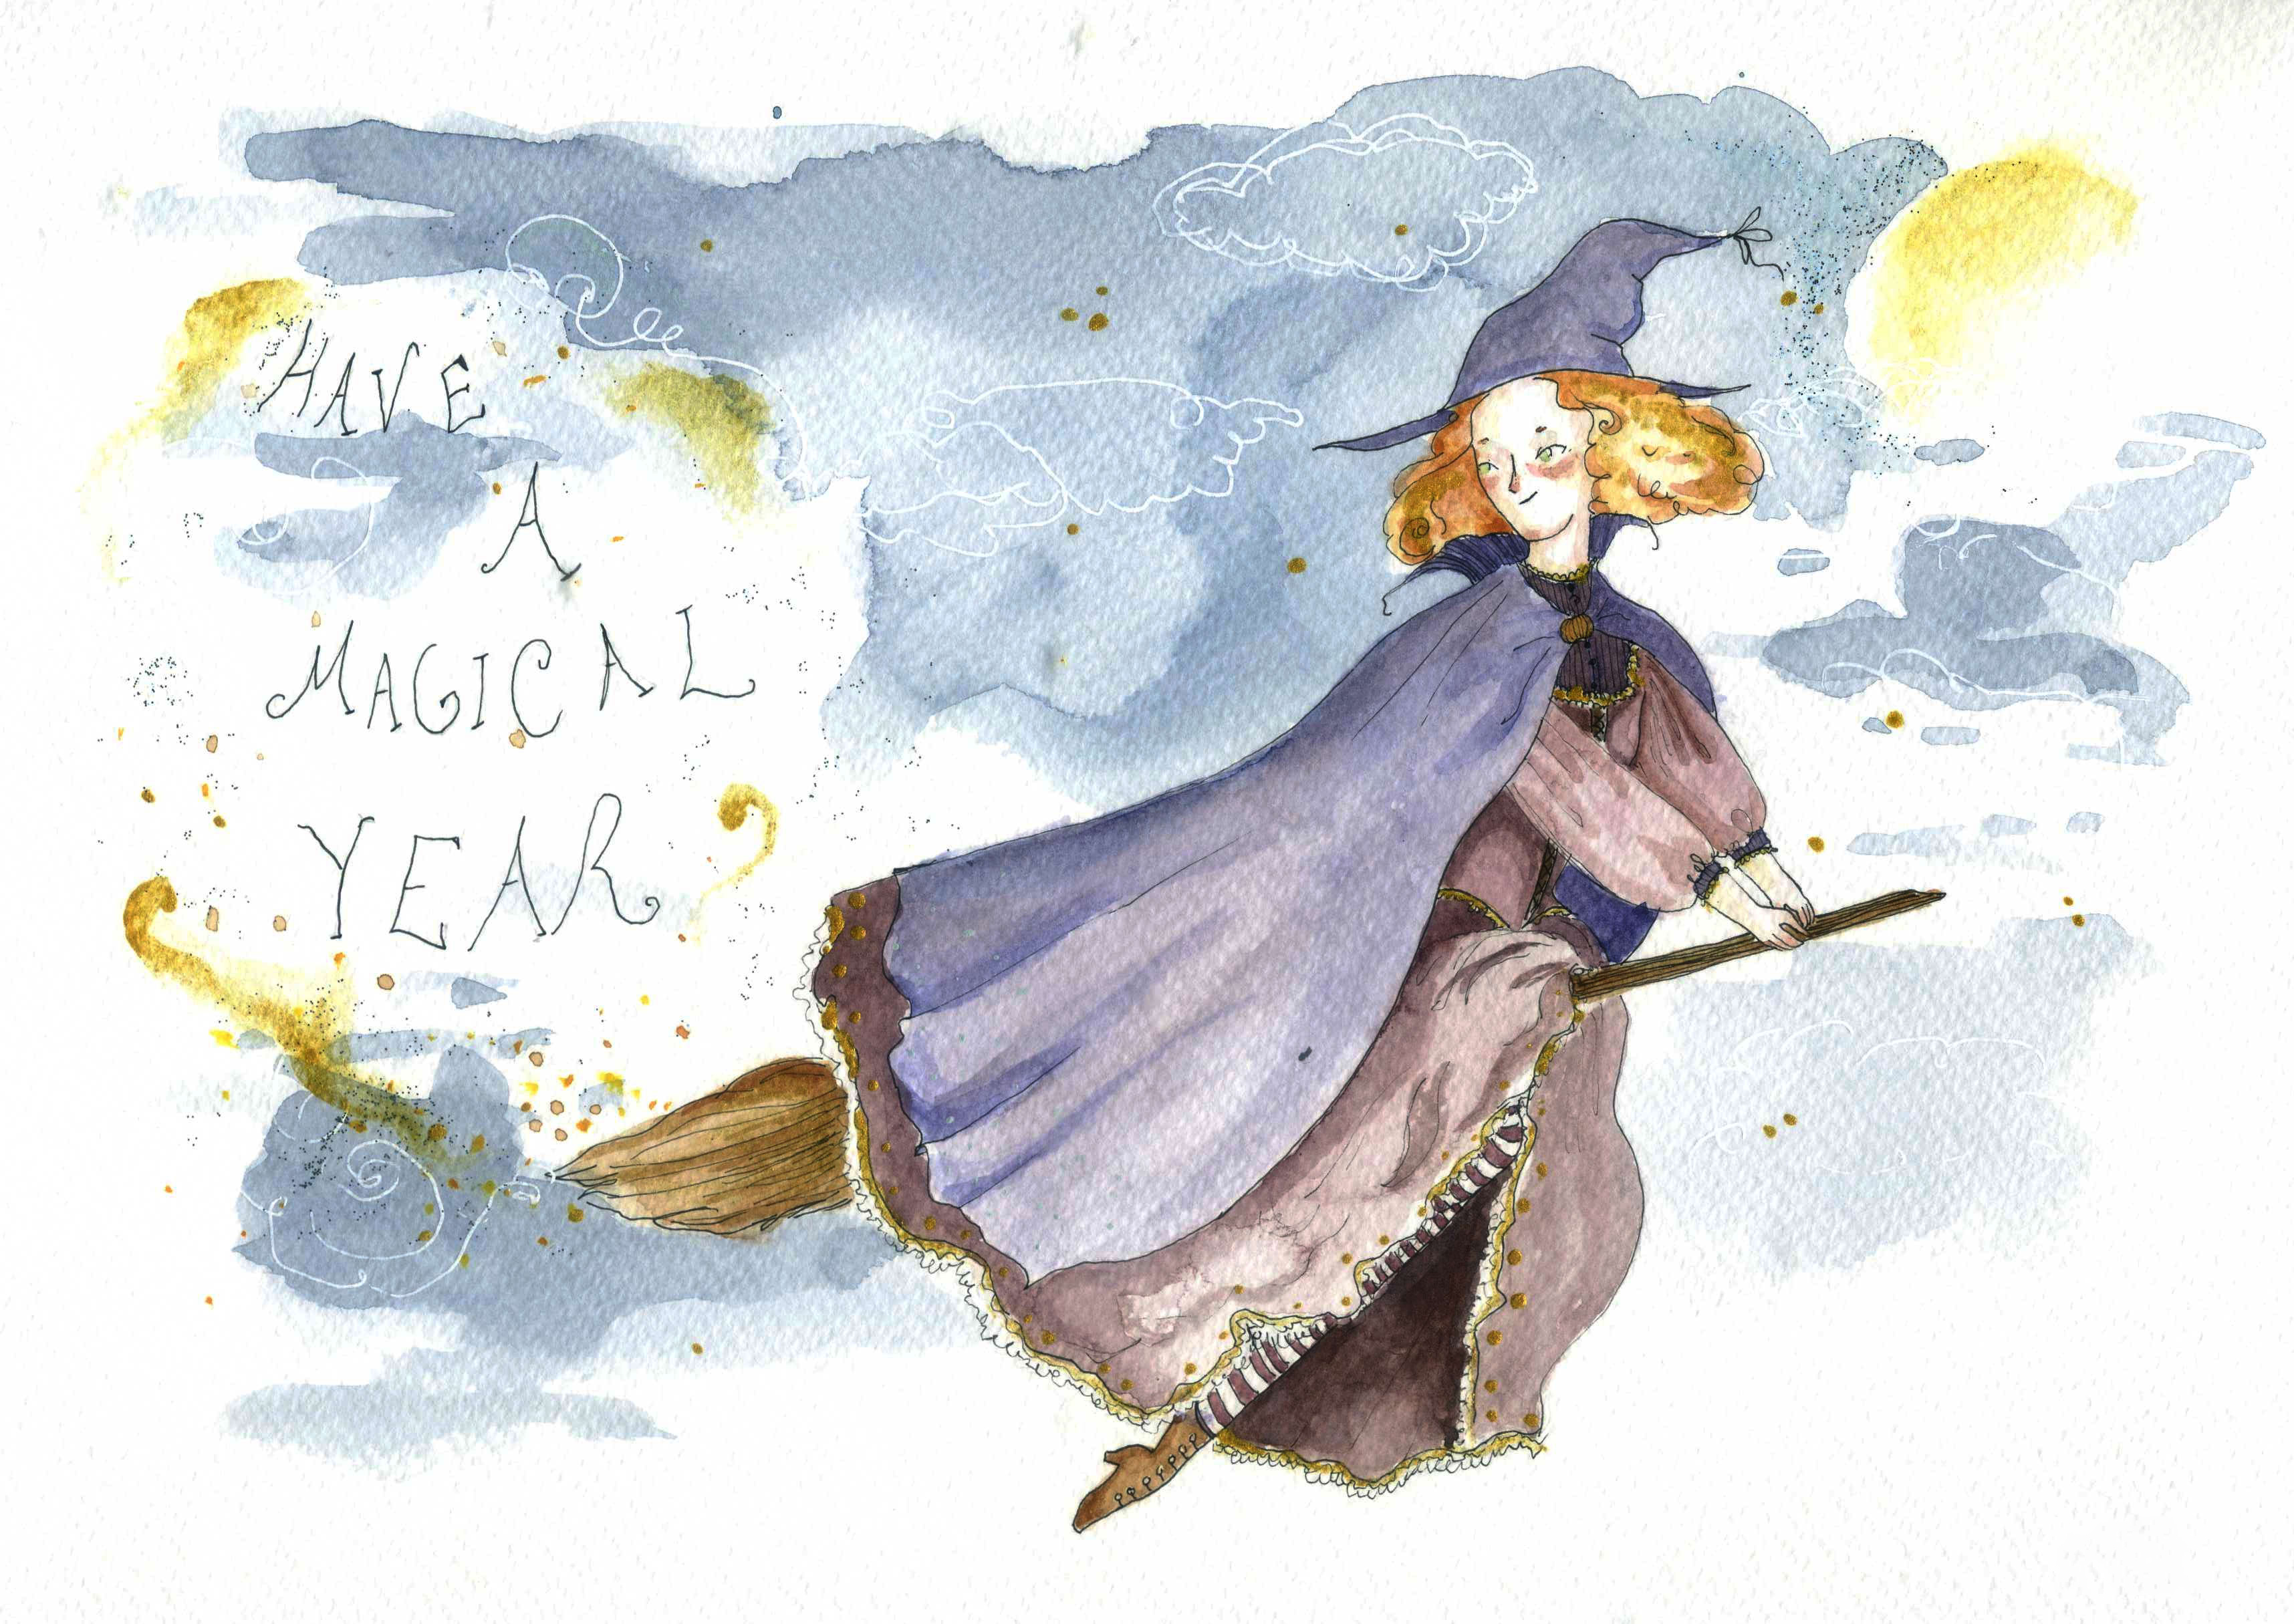 HAVE
A
MAGICAL
YEAR